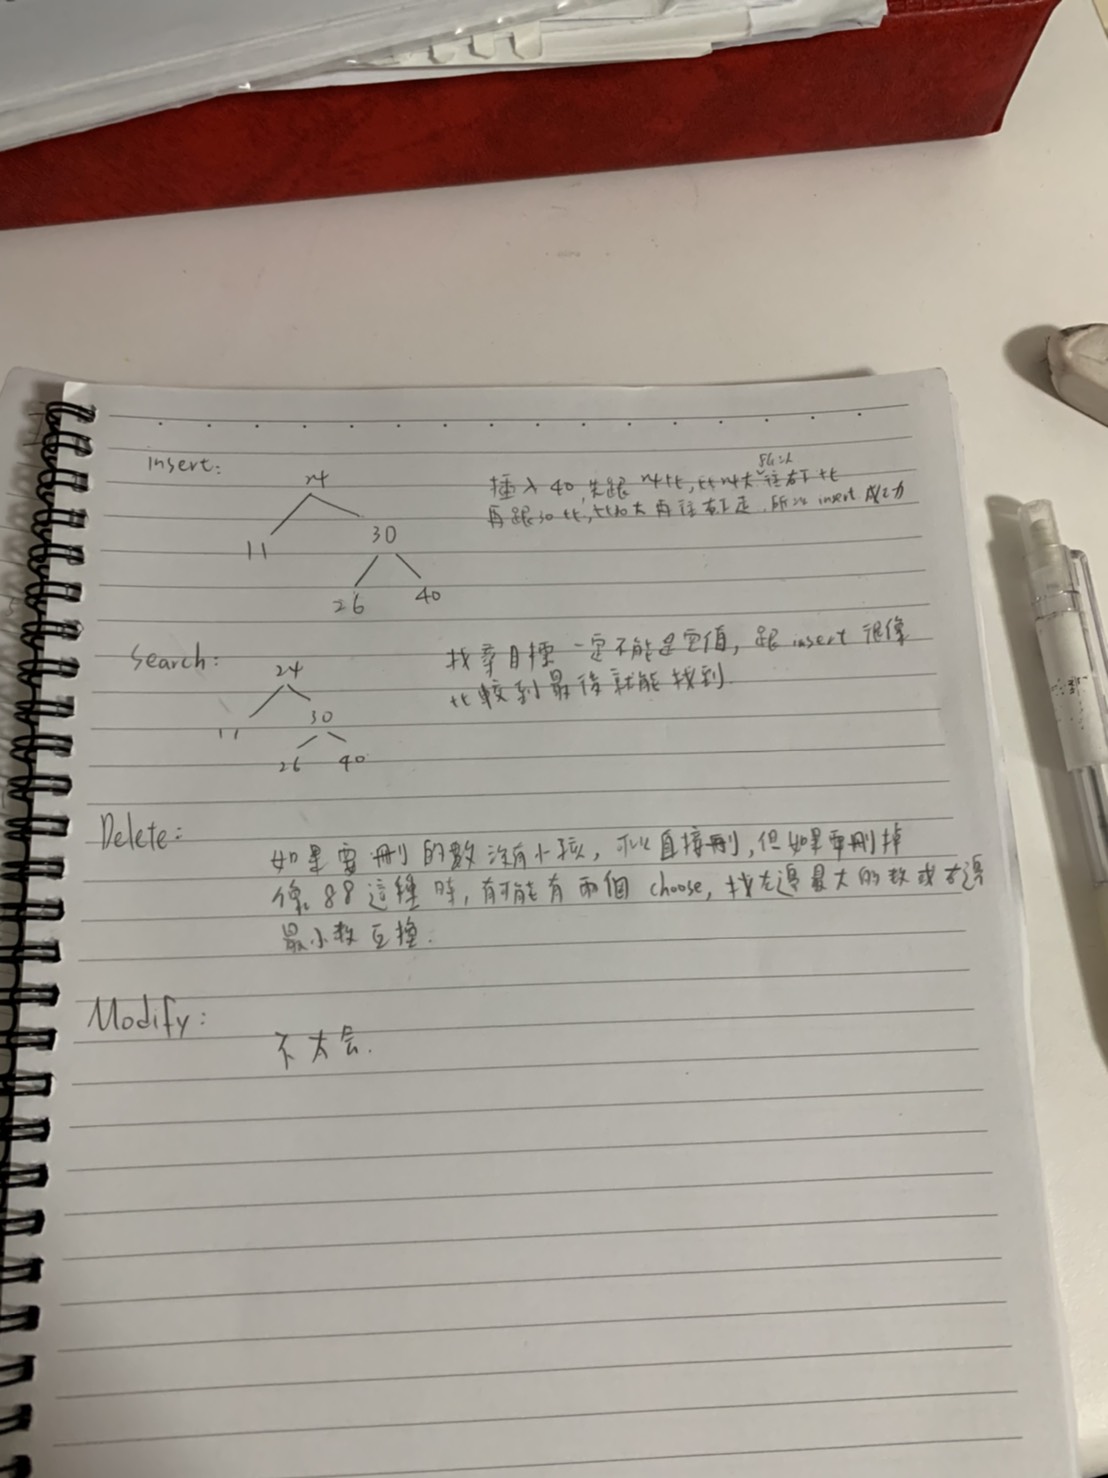 insert:
24
11
30
26
40
所以
插入40,先跟24比,比24大往右下比
再跟30比,比30大再往右下走,所以insert成功
Search:
24
11
30
26
40
找尋目標一定不能是空值,跟insert很像
比較到最後就能找到.
Delete:
如果要刪的數沒有小孩,可以直接刪,但如果要刪掉
像88這種時,有可能有兩個choose,找左邊最大的數或右邊
最小數互換.
Modify:
不太会.